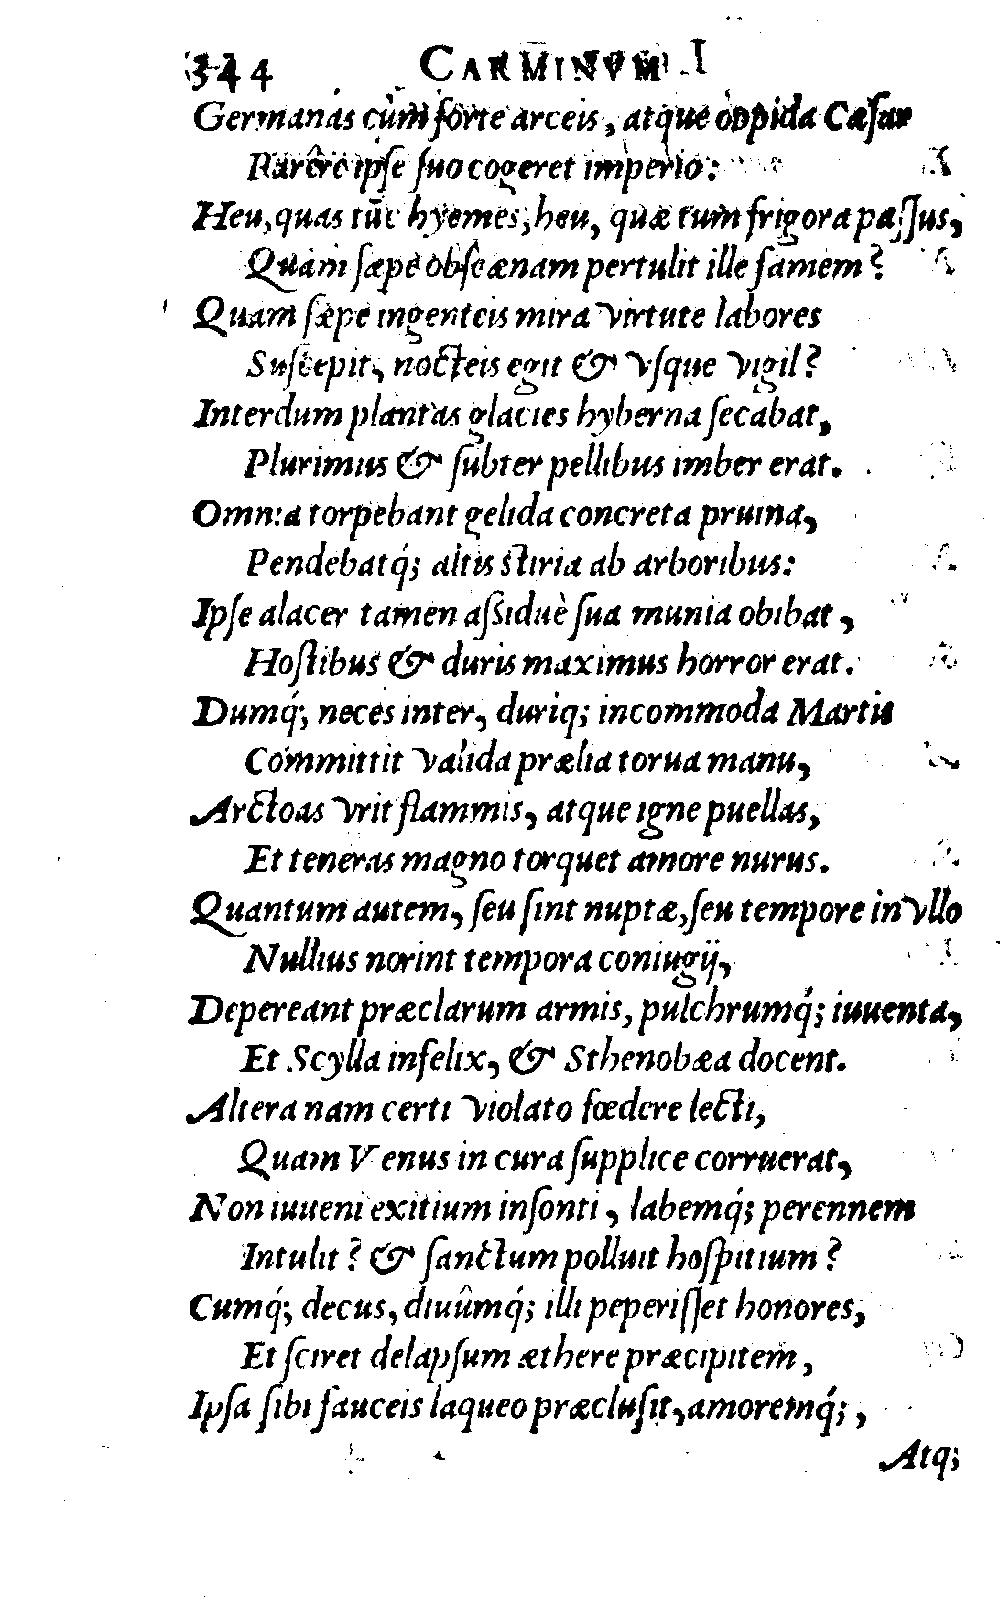 344 CARMINVM I
Germanas cùm forte arceis, atque oppida Cæsar
Parêre ipse suo cogeret imperio:
Heu, quas tũc hyemes, heu, quæ tum frigora passus,
Quàm sæpe obscænam pertulit ille famem?
Quam sæpe ingenteis mira virtute labores
Suscepit, nocteis egit & vsque vigil?
Interdum plantas glacies hyberna secabat,
Plurimus & subter pellibus imber erat.
Omnia torpebant gelida concreta pruina,
Pendebatq́; altis stiria ab arboribus:
Ipse alacer tamen assiduè sua munia obibat,
Hostibus & duris maximus horror erat.
Dumq́; neces inter, duriq; incommoda Martis
Committit valida prælia torua manu,
Arctoas vrit flammis, atque igne puellas,
Et teneras magno torquet amore nurus.
Quantum autem, seu sint nuptæ, seu tempore in vllo
Nullius norint tempora coniugij,
Depereant præclarum armis, pulchrumq́; iuuenta,
Et Scylla infelix, & Sthenobæa docent.
Altera nam certi violato fœdere lecti,
Quam Venus in cura supplice corruerat,
Non iuueni exitium insonti, labemq́; perennem
Intulit? & sanctum polluit hospitium?
Cumq́; decus, diuûmq́; illi peperisset honores,
Et sciret delapsum æthere præcipitem,
Ipsa sibi fauceis laqueo præclusit, amoremq́;,
Atq;